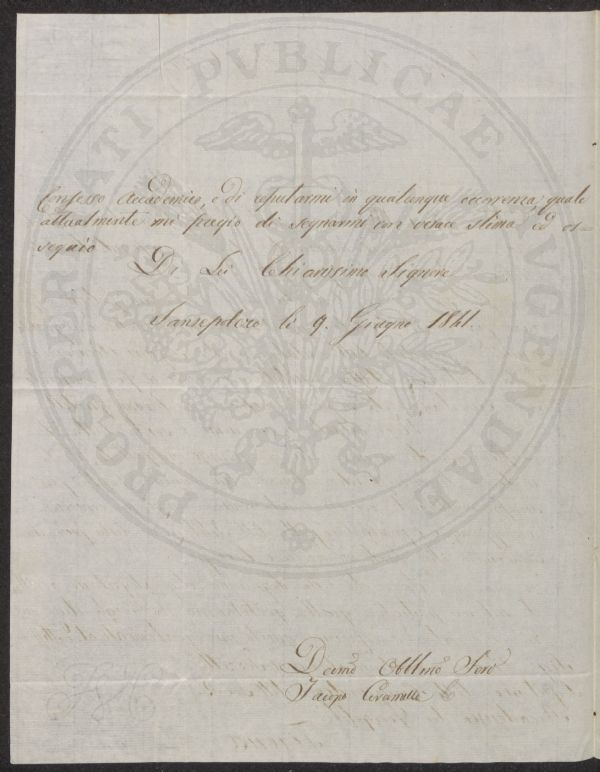 PROSPERITATI PVBLICAE AVGENDAE
Confesso Accademico, e di reputarmi in qualunque occorrenza, quale
attualmente mi pregio di segnarmi con verace stima ed os=
sequio
Di Lei Chiarissimo Signore
Sansepolcro li 9. Giugno 1841.
Devmo Obblmo Serv
Jacopo